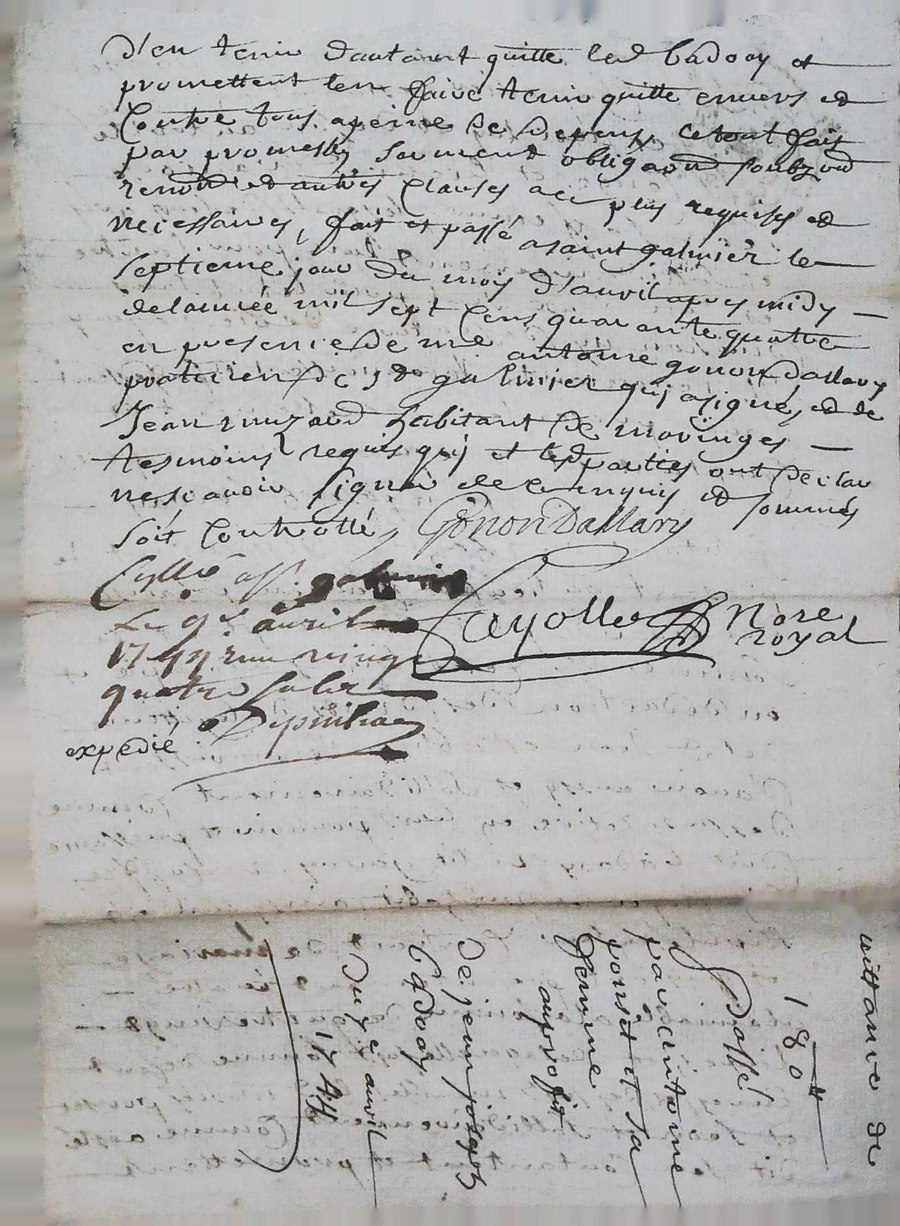 d'en tenir dautant quitte led badooy et
promettent len faire tenir quitte envers et
Contre tous apeine de depens, ce tout fait
par promesses serment obligaōn soubzōn
renonōn et autres Clauses ace plus requises et
necessaires, fait et passé a saint galmier le
septieme jour du moy d'avril apres midy
delannée mil sept Cens quarante quatre
en presence de me antoine gonon dallary
praticien de st galmier quj a signé, et de
Jean muzard habitant de moringes
tesmoins requis quj et lesd parties ont declar
ne scavoir signer de ce enquis et sommés
soit Controllé, GononDallary
Cyllé a st galmier
Le 9e avril
1744 reçu vingt
quatre sols
expedié
Fayolle Nore
royal
wittance de
180
passé
par antoine
ponsot et sa
femme
auproffit
de jean joseph
badooy
du 7e avril
1744